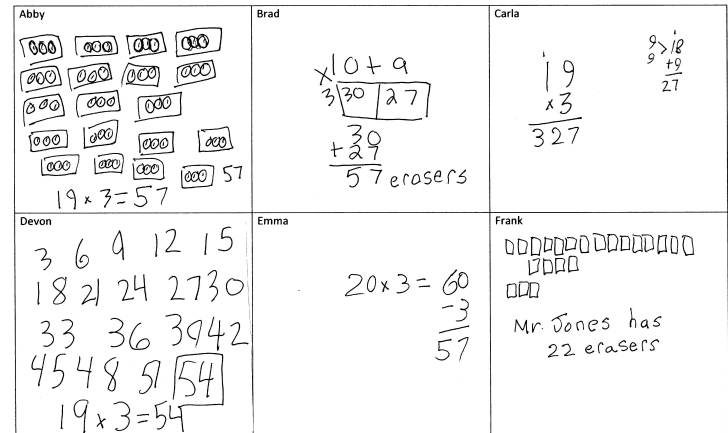 Abby
57
19 x 3 = 57
Brad
x 10 + 9
3 30 27
30
+27
57 erasers
Carla
1
19
x3
327
1
9 > 18
9 +9
27
Devon
3 6 9 12 15
18 21 24 27 30
33 36 39 42
45 48 51 54
19 x 3 = 54
Emma
20 x 3 = 60
-3
57
Frank
Mr. Jones has
22 erasers